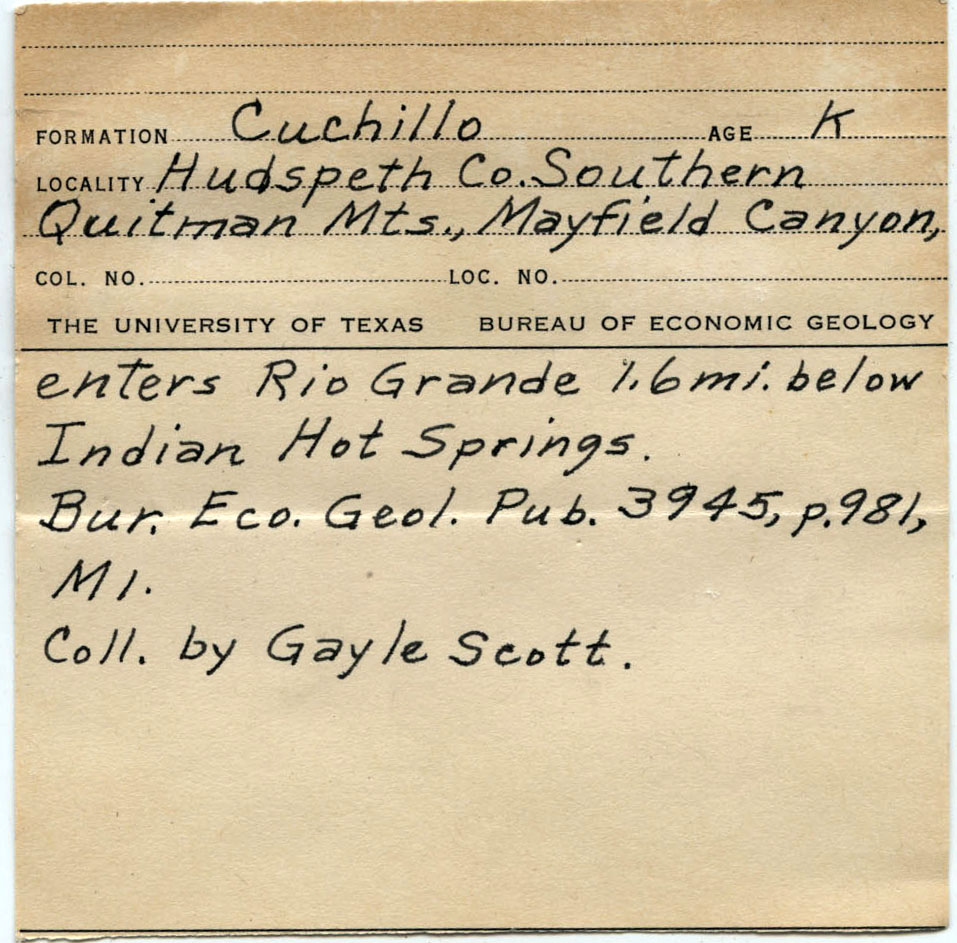 FORMATION Cuchillo AGE K
LOCALITY Hudspeth Co. Southern
Quitman Mts., Mayfield Canyon,
COL. NO. LOC. NO.
THE UNIVERSITY OF TEXAS BUREAU OF ECONOMIC GEOLOGY
enters Rio Grande 1.6 mi. below
Indian Hot Springs.
Bur. Eco. Geol. Pub. 3945, p.981,
M1.
Coll. by Gayle Scott.